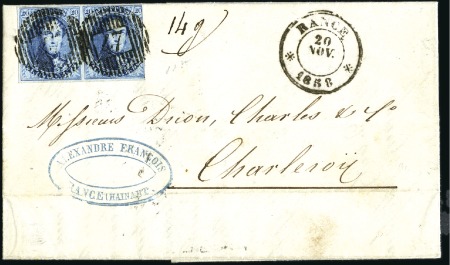 20 20 20 20
14g
RANCE
20
NOV.
1858
Messieurs Drion, Charles & Cº
Charleroÿ
ALEXANDRE FRANÇOIS
RANCE (HAINAUT)